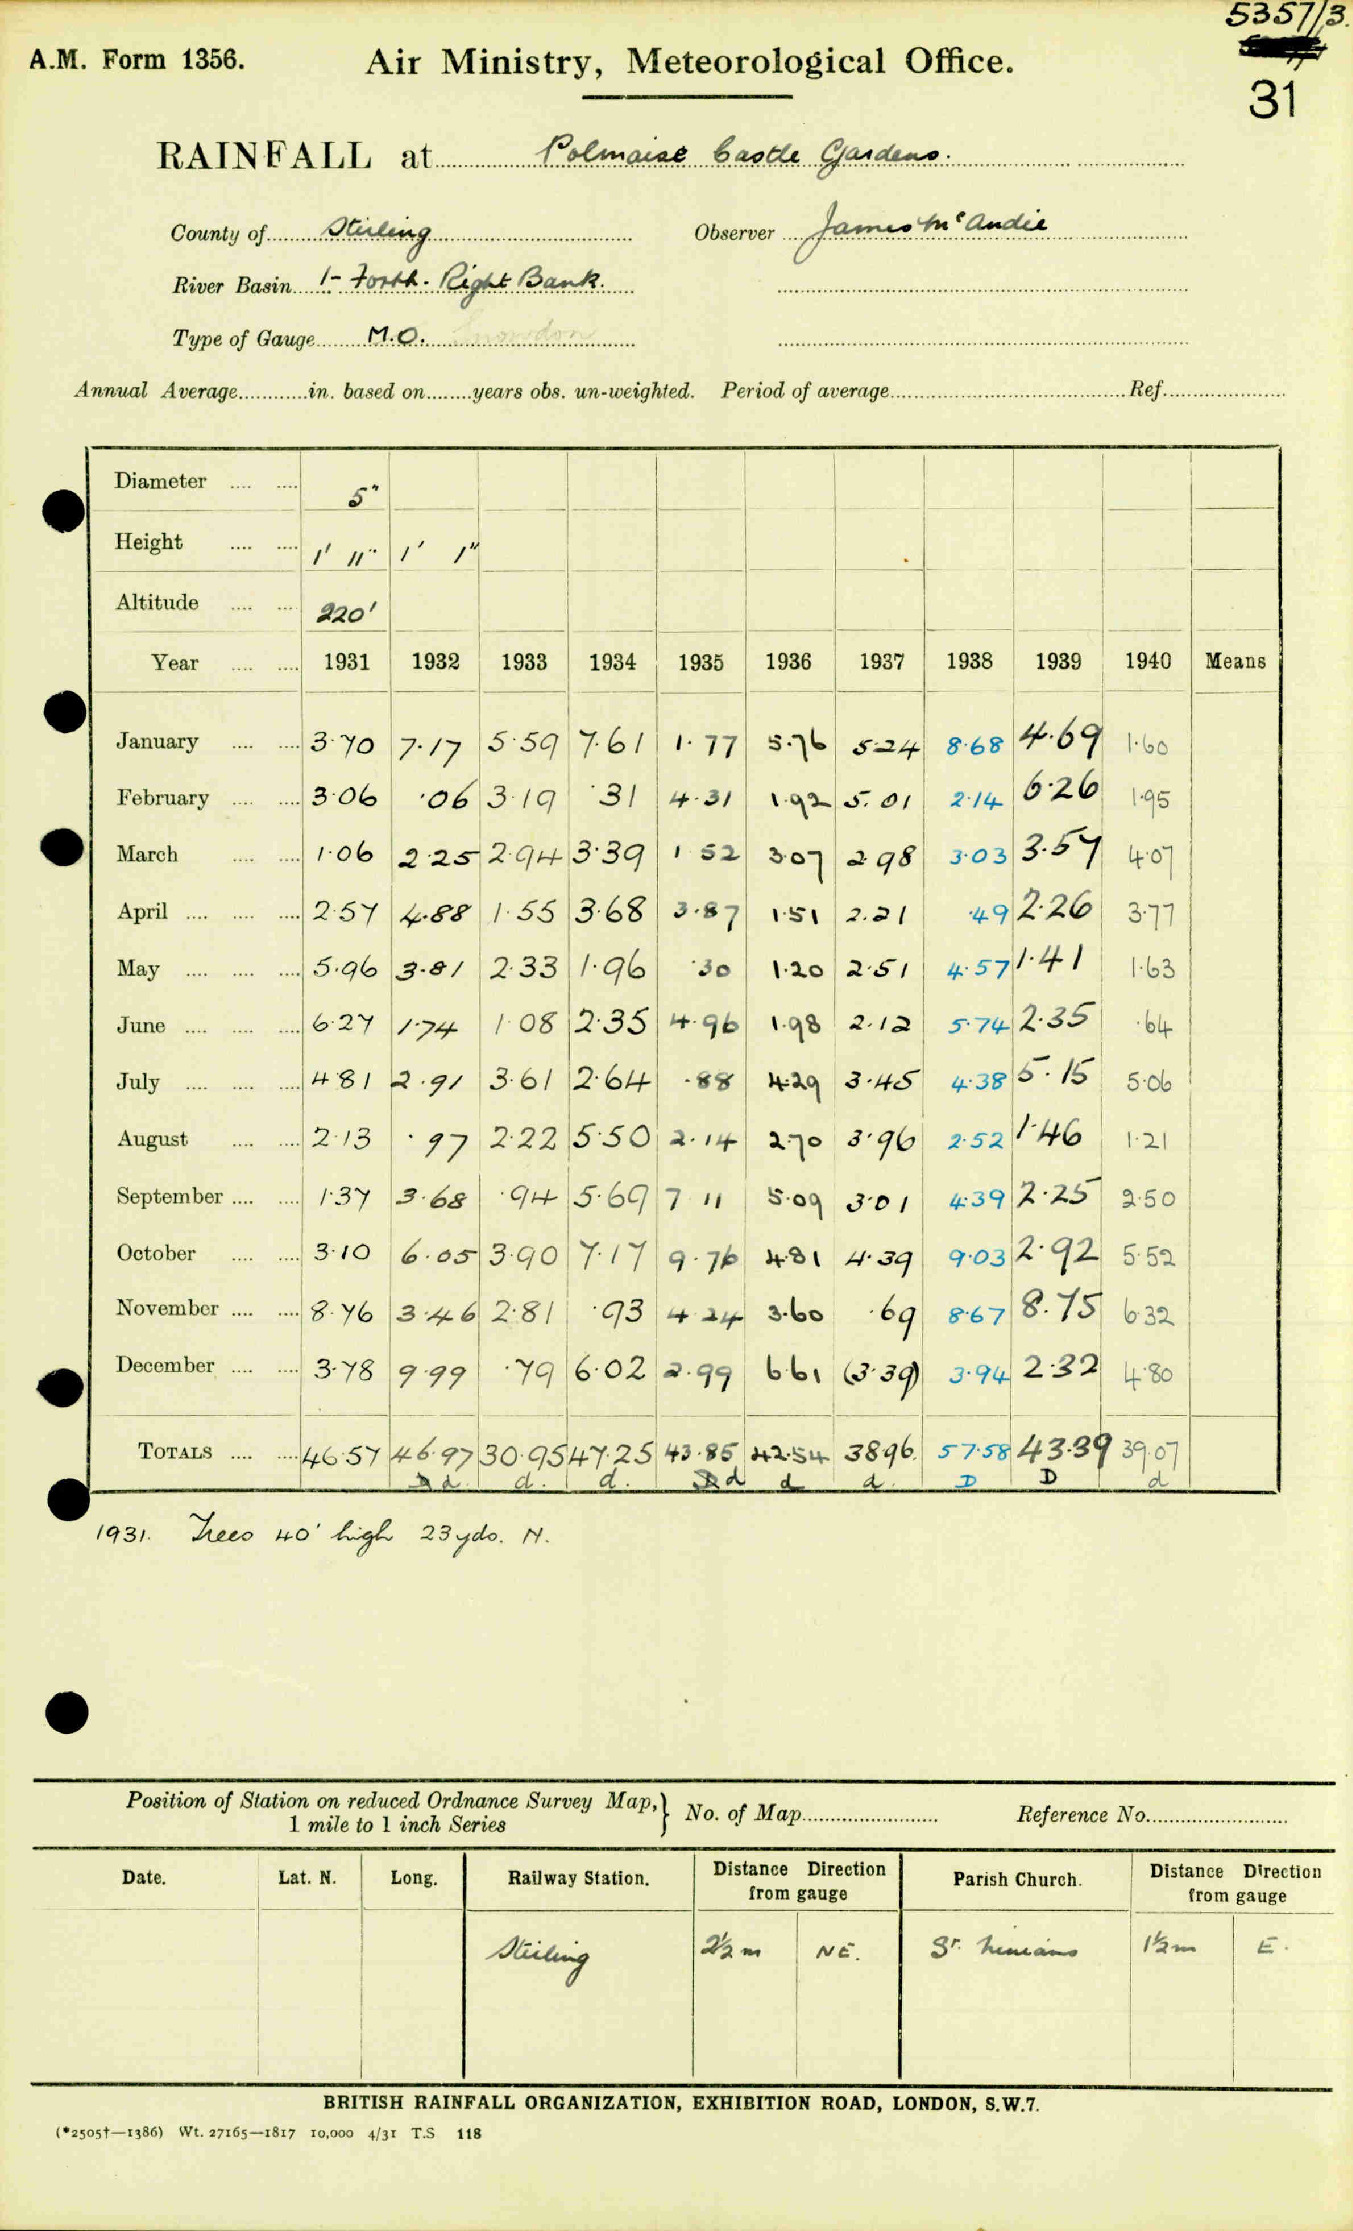 5357/3.
A.M. Form 1356. Air Ministry, Meteorological Office.
31
RAINFALL at Polmaise Castle Gardens.
County of Stirling Observer James McAndie
River Basin 1- Forth. Right Bank.
Type of Gauge M.O. Snowdon
Annual Average in. based on years obs. un-weighted. Period of average Ref.
Diameter 5"
Height 1' 11" 1' 1"
Altitude 220'
Year 1931 1932 1933 1934 1935 1936 1937 1938 1939 1940 Means
January 3.70 7.17 5.59 7.61 1.77 5.76 5.24 8.68 4.69 1.60
February 3.06 .06 3.19 .31 4.31 1.92 5.01 2.14 6.26 1.95
March 1.06 2.25 2.94 3.39 1.52 3.07 2.98 3.03 3.57 4.07
April 2.57 4.88 1.55 3.68 3.87 1.51 2.21 .49 2.26 3.77
May 5.96 3.81 2.33 1.96 .30 1.20 2.51 4.57 1.41 1.63
June 6.27 1.74 1.08 2.35 4.96 1.98 2.12 5.74 2.35 .64
July 4.81 2.91 3.61 2.64 .88 4.29 3.45 4.38 5.15 5.06
August 2.13 .97 2.22 5.50 2.14 2.70 3.96 2.52 1.46 1.21
September 1.37 3.68 .94 5.69 7.11 5.09 3.01 4.39 2.25 2.50
October 3.10 6.05 3.90 7.17 9.76 4.81 4.39 9.03 2.92 5.52
November 8.76 3.46 2.81 .93 4.24 3.60 .69 8.67 8.75 6.32
December 3.78 9.99 .79 6.02 2.99 6.61 (3.39) 3.94 2.32 4.80
TOTALS 46.57 46.97 30.95 47.25 43.85 42.54 38.96 57.58 43.39 39.07
d. d. d. d d d. D D d
1931. Trees 40' high 23 yds. N.
Position of Station on reduced Ordnance Survey Map, } No. of Map Reference No.
1 mile to 1 inch Series
Date. Lat. N. Long. Railway Station. Distance Direction from gauge Parish Church. Distance Direction from gauge
Stirling 2½ m NE. St. Ninians 1½ m E.
BRITISH RAINFALL ORGANIZATION, EXHIBITION ROAD, LONDON, S.W.7.
(*2505†—1386) Wt. 27165—1817 10,000 4/31 T.S 118